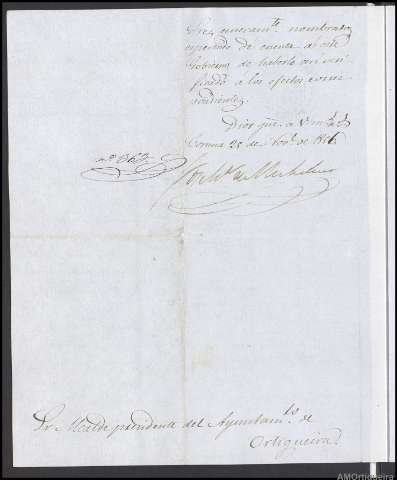 nuevam.te nombrados
esperando dé cuenta á este
Gobierno de haberlo asi veri-
ficado á los efectos corres-
pondientes.
Dios gue. á V. m.s a.s
Coruña 22 de Nov.e de 1856.
nº 362
Sr. Alcalde presidente del Ayuntam.to de
Ortigueira.
AMOrtigueira